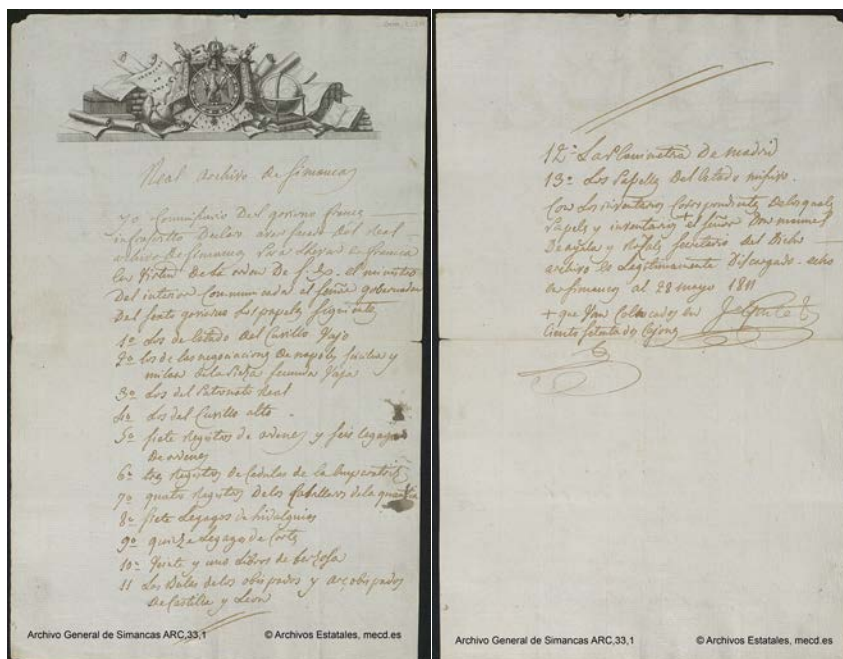 Real Archivo de Simancas
yo Commissario Del govierno frances
infrascritto Declaro aver sacado del Real
archivo de Simancas para llevar en francia
en Virtud de la orden De S. Ex. el ministro
Del interior Communicada el señor gobernador
Del sexto govierno los papeles siguientes
1º Los de Estado del Cuvillo Vajo
2º los de las negociaciones De napoly sicilia y
milan de la Pieza segunda Vaja
3º Los del Patronato Real
4º Los del Cuvillo alto.
5º siete Registros de ordenes y seis legagos
De ordenes
6º tres Registros de Cedulas de la Emperatriz
7º quatro Registros De los Caballeros de la quantia
8º siete Legagos de hidalguias
9º quinze Legagos de Cortes
10º Veinte y uno Libros de berzosa
11 Las Bulas de los obispados y arçobispados
De Castilla y Leon
Archivo General de Simancas ARC,33,1
© Archivos Estatales, mecd.es
12º La Planimetria De madrid
13º Los Papeles Del Estado misivo.
Con Los inventarios Correspondientes De los quales
Papeles y inventarios + el señor Don manuel
De ayala y Rosales secretario del Dicho
archivo es Legitimamente Discargado. echo
en Simancas al 28 mayo 1811
+ que Van Collocados en
Ciento setenta dos Cajones
Archivo General de Simancas ARC,33,1
© Archivos Estatales, mecd.es